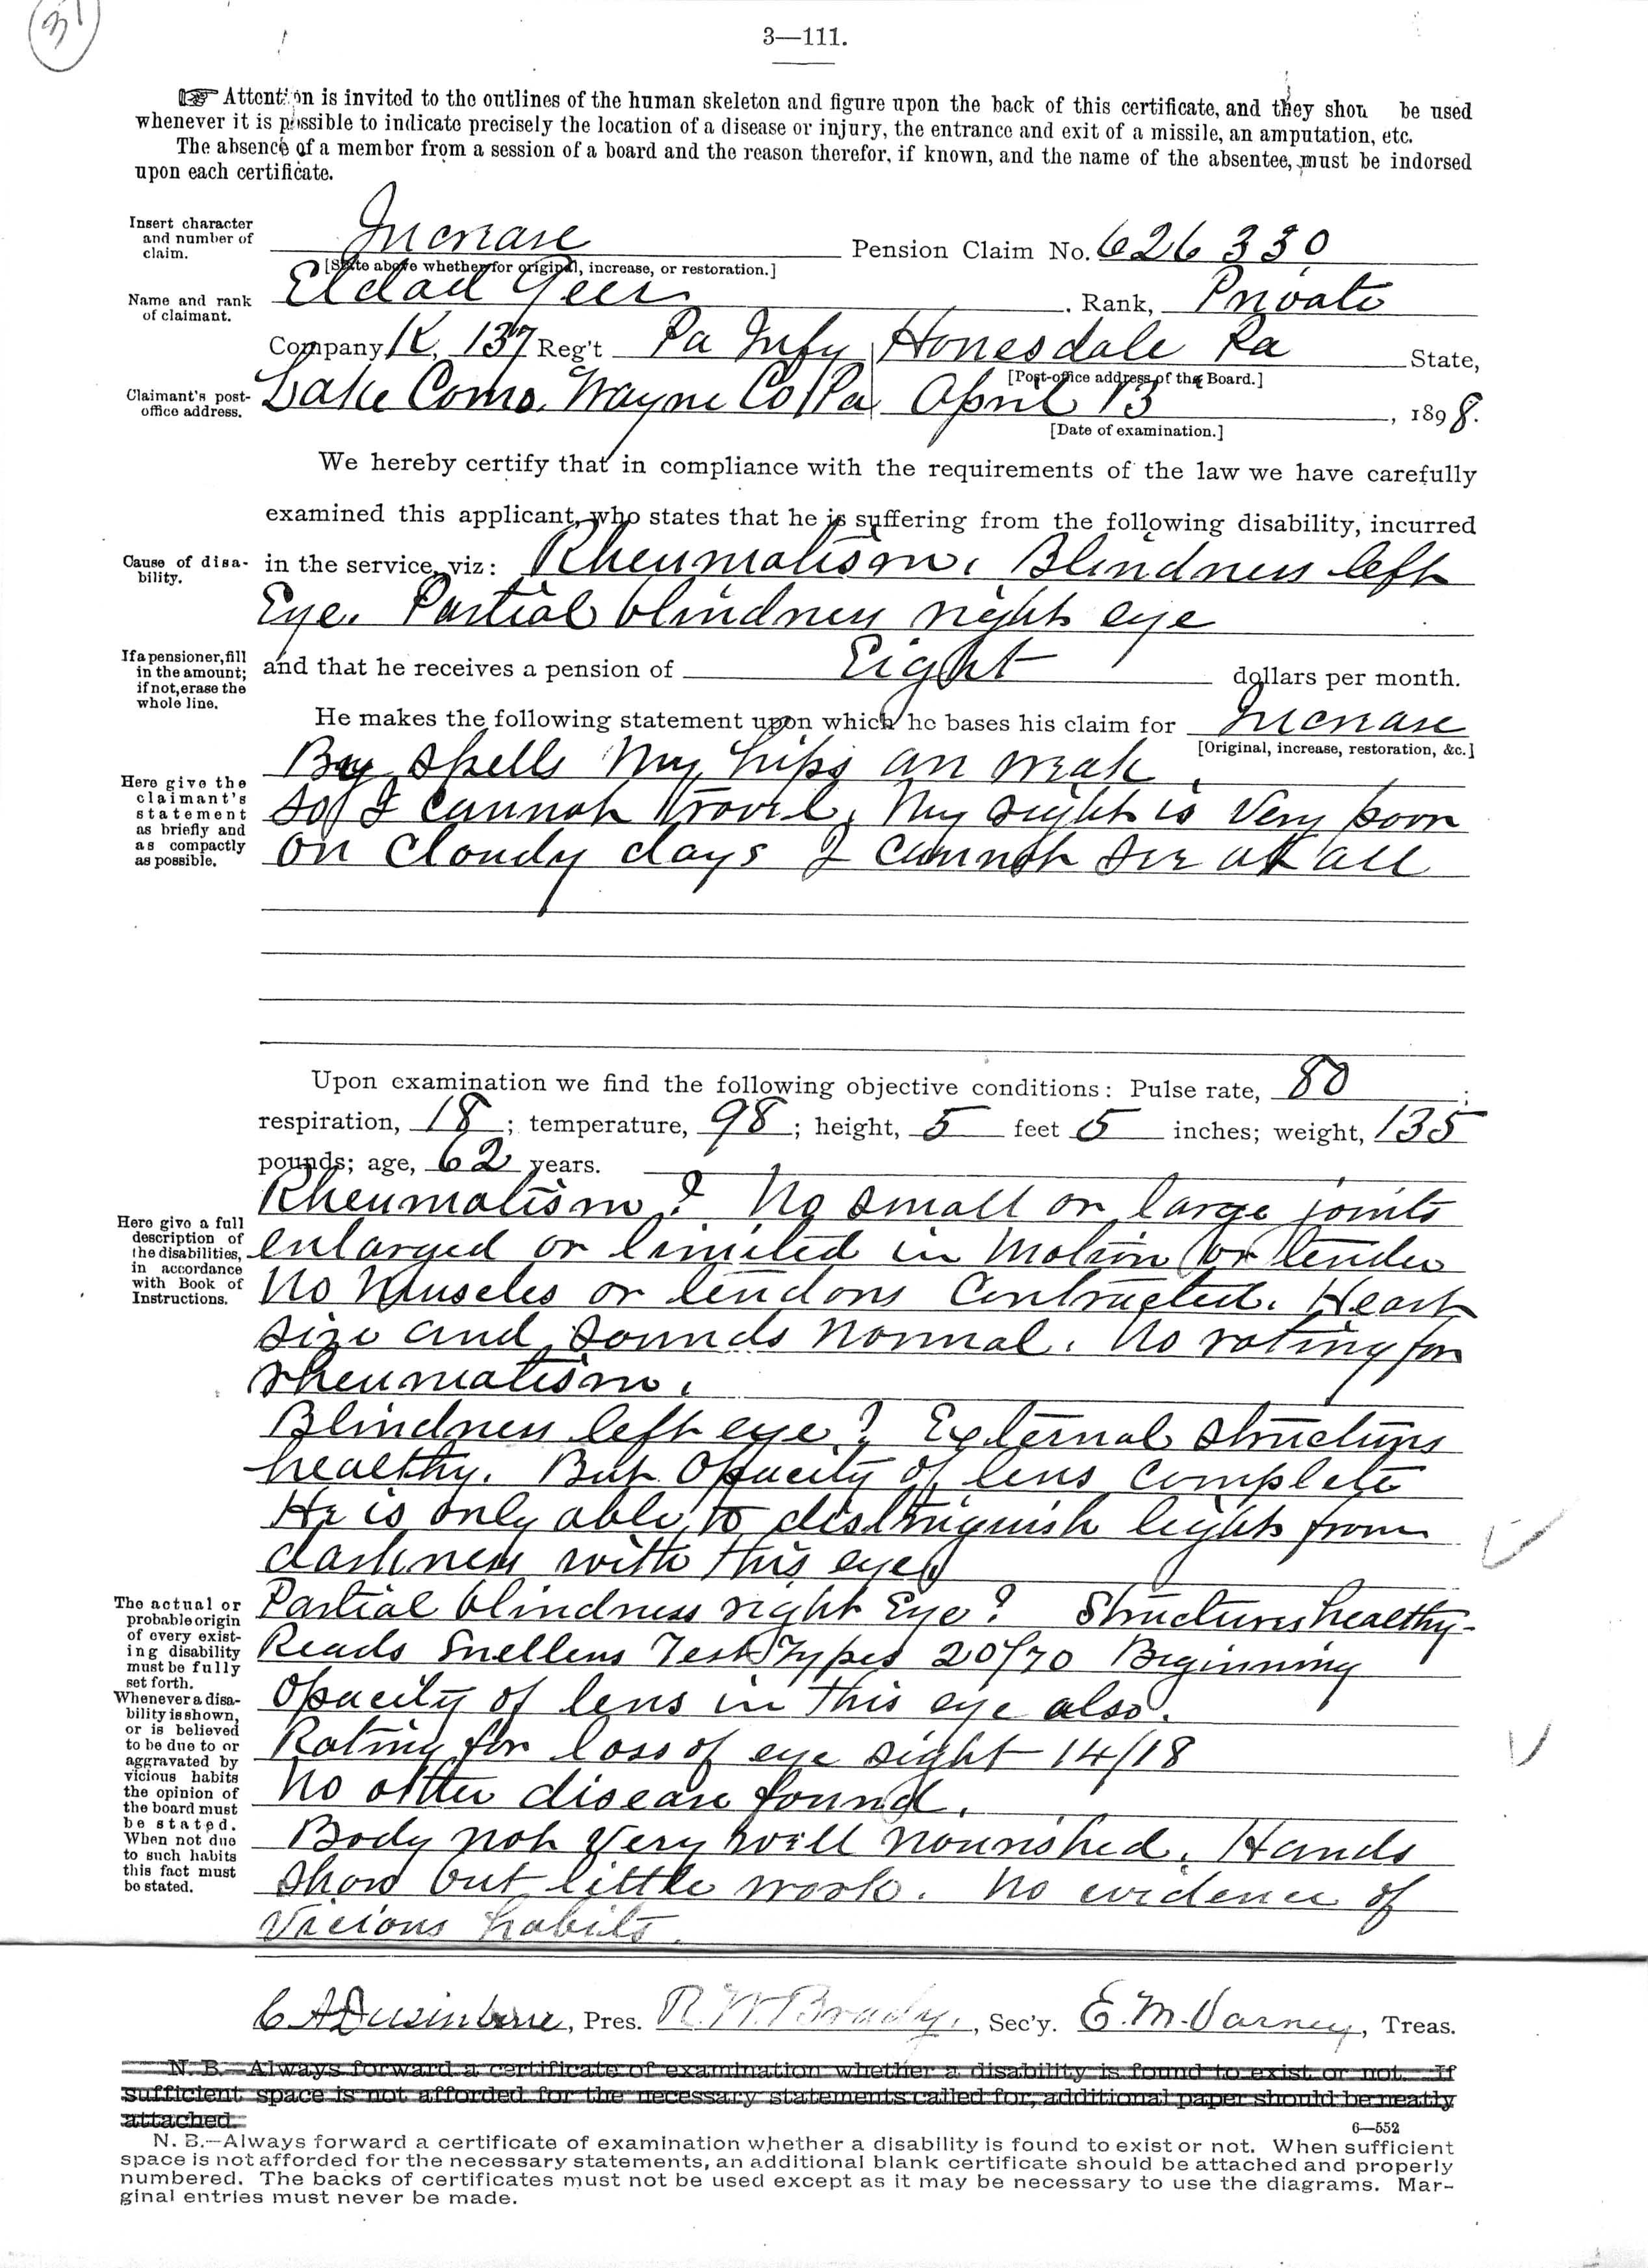 3
3—111.
☞ Attention is invited to the outlines of the human skeleton and figure upon the back of this certificate, and they shou be used
whenever it is possible to indicate precisely the location of a disease or injury, the entrance and exit of a missile, an amputation, etc.
The absence of a member from a session of a board and the reason therefor, if known, and the name of the absentee, must be indorsed
upon each certificate.
Insert character and number of claim.
Increase Pension Claim No. 626330
[State above whether for original, increase, or restoration.]
Name and rank of claimant.
Eldad Geer, Rank, Private
Company K, 137 Reg't Pa Infy Honesdale Pa State,
[Post-office address of the Board.]
Claimant's post-office address.
Lake Como. Wayne Co Pa April 13, 1898.
[Date of examination.]
We hereby certify that in compliance with the requirements of the law we have carefully
examined this applicant, who states that he is suffering from the following disability, incurred
Cause of disability.
in the service, viz: Rheumatism. Blindness left
Eye. Partial blindness right eye
If a pensioner, fill in the amount; if not, erase the whole line.
and that he receives a pension of Eight dollars per month.
He makes the following statement upon which he bases his claim for Increase
[Original, increase, restoration, &c.]
Here give the claimant's statement as briefly and as compactly as possible.
By spells My hips are weak.
so I cannot travel. My sight is very poor
on cloudy days I cannot see at all
Upon examination we find the following objective conditions: Pulse rate, 80;
respiration, 18; temperature, 98; height, 5 feet 5 inches; weight, 135
pounds; age, 62 years.
Here give a full description of the disabilities, in accordance with Book of Instructions.
Rheumatism? No small or large joints
enlarged or limited in motion or tender
No muscles or tendons contracted. Heart
size and sounds normal. No rating for
rheumatism.
Blindness left eye? External structures
healthy. But opacity of lens complete
He is only able to distinguish light from
darkness with this eye
The actual or probable origin of every existing disability must be fully set forth.
Whenever a disability is shown, or is believed to be due to or aggravated by vicious habits the opinion of the board must be stated. When not due to such habits this fact must be stated.
Partial blindness right Eye? Structures healthy-
Reads Snellens Test Types 20/70 Beginning
opacity of lens in this eye also.
Rating for loss of eye sight 14/18
No other disease found.
Body not very well nourished. Hands
show but little work. No evidence of
vicious habits.
C A Dusinberre, Pres. R. W. Brady, Sec'y. E. M. Varney, Treas.
N. B.—Always forward a certificate of examination whether a disability is found to exist or not. If
sufficient space is not afforded for the necessary statements called for, additional paper should be neatly
attached.
6—552
N. B.—Always forward a certificate of examination whether a disability is found to exist or not. When sufficient
space is not afforded for the necessary statements, an additional blank certificate should be attached and properly
numbered. The backs of certificates must not be used except as it may be necessary to use the diagrams. Mar-
ginal entries must never be made.